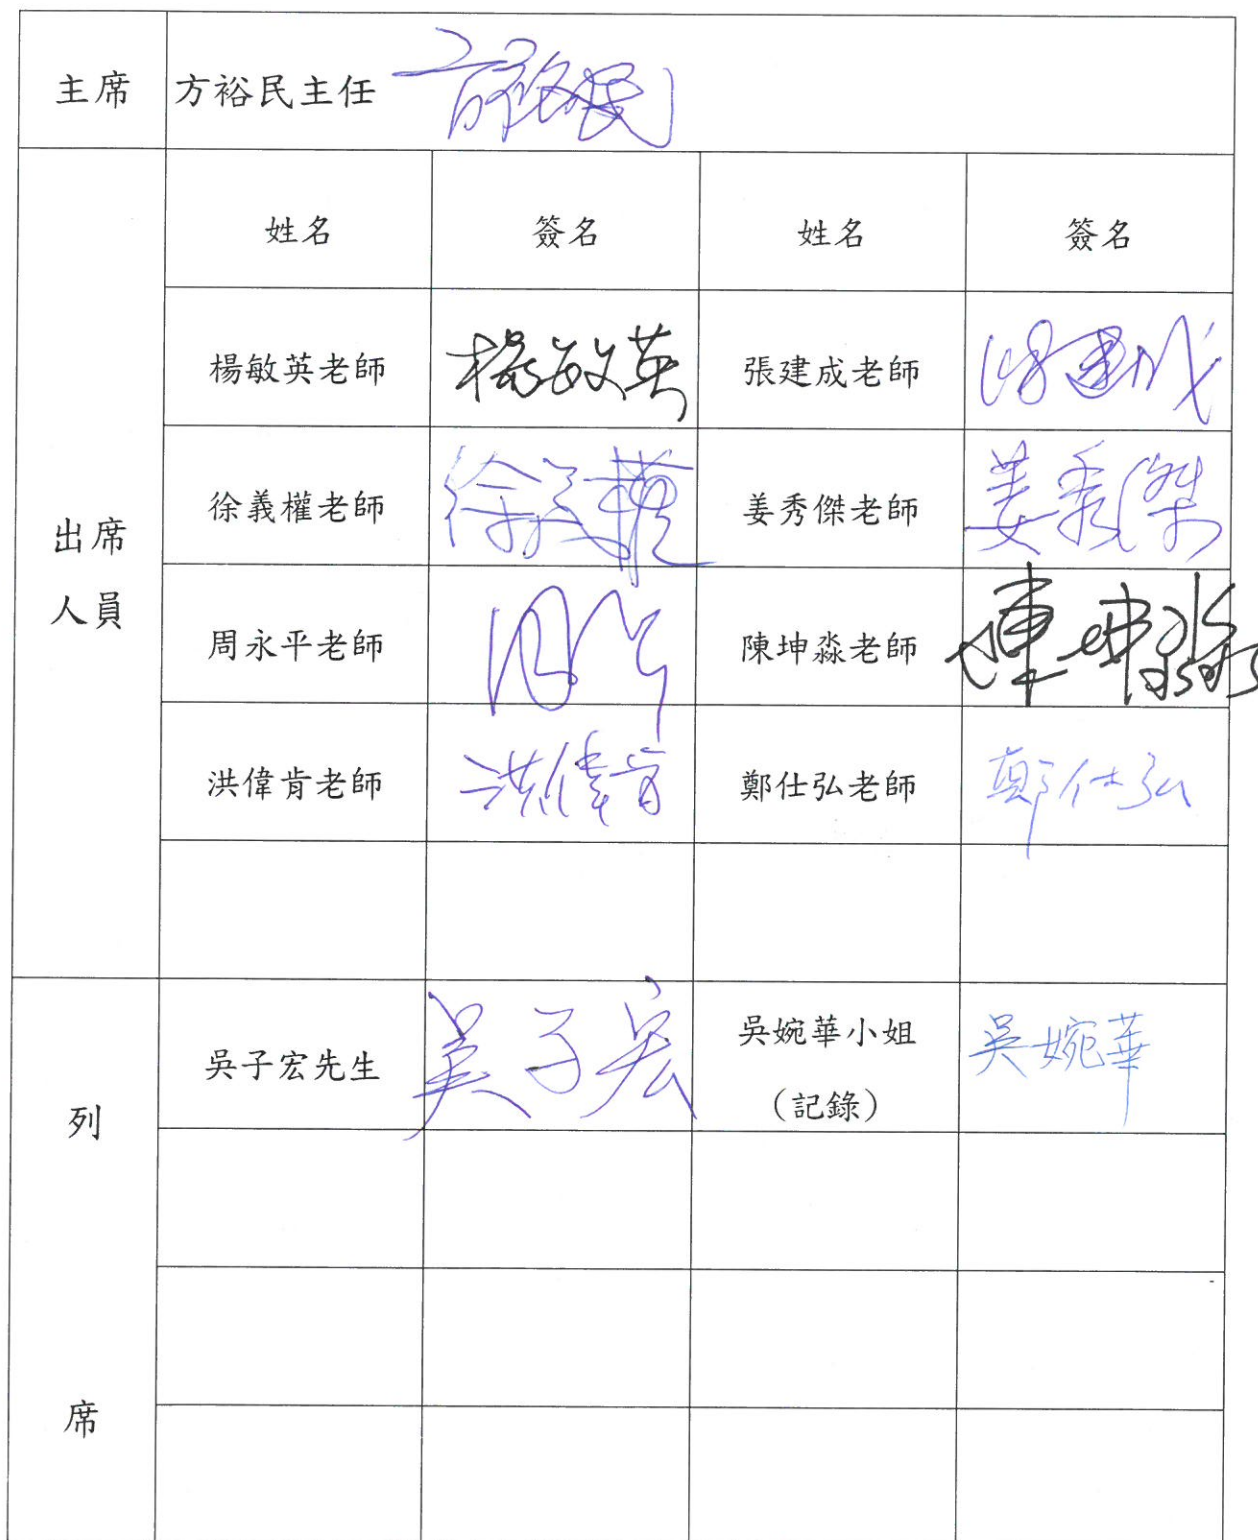 主席 方裕民主任 方裕民
姓名 簽名 姓名 簽名
楊敏英老師 楊敏英 張建成老師 張建成
出席
人員
徐義權老師 徐義權 姜秀傑老師 姜秀傑
周永平老師 陳坤淼老師 陳坤淼
洪偉肯老師 洪偉肯 鄭仕弘老師 鄭仕弘
列
席
吳子宏先生 吳子宏 吳婉華小姐 吳婉華
（記錄）